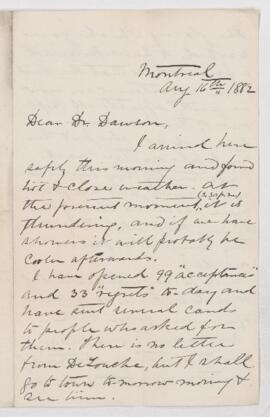 Montreal
Aug 16th 1882
Dear Dr. Dawson,
I arrived here
safely this morning and found
hot & close weather. At
the present moment, it is
thundering, and if we have
showers it will probably be
cooler afterwards.
I have opened 99 "acceptances"
and 33 "regrets" to-day and
have sent several cards
to people who asked for
them. There is no letter
from DeZouche, but I shall
go to town to-morrow morning &
see him.